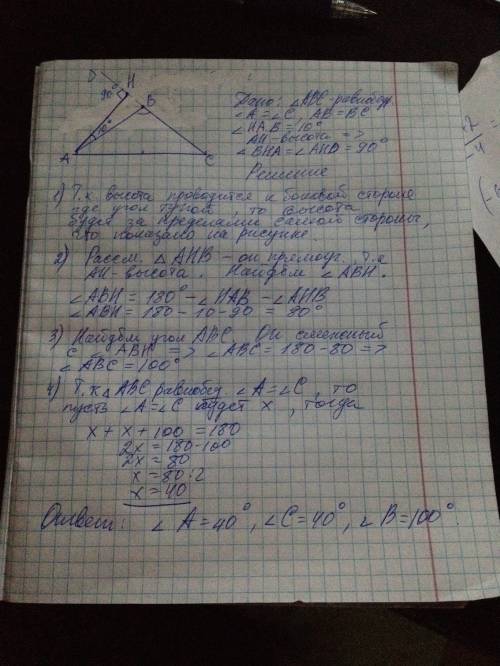 D H
90°
B
10°
A C
Дано: △ABC - равнобедр.
∠A = ∠C, AB = BC
∠HAB = 10°
AH - высота =>
∠BHA = ∠AHB = 90°
Решение
1) Т.к высота проводится к боковой стороне
где угол тупой, то высота
будет за пределами самой стороны,
что показано на рисунке.
2) Рассм. △AHB - он прямоуг. т.к
AH - высота. Найдём ∠ABH.
∠ABH = 180° - ∠HAB - ∠AHB
∠ABH = 180 - 10 - 90 = 80°
3) Найдём угол ABC. Он смежный
с ∠ABH => ∠ABC = 180 - 80 =>
∠ABC = 100°
4) Т.к △ABC равнобед. ∠A = ∠C, то
пусть ∠A = ∠C будет x, тогда
x + x + 100 = 180
2x = 180 - 100
2x = 80
x = 80 : 2
x = 40
Ответ: ∠A = 40°, ∠C = 40°, ∠B = 100°.